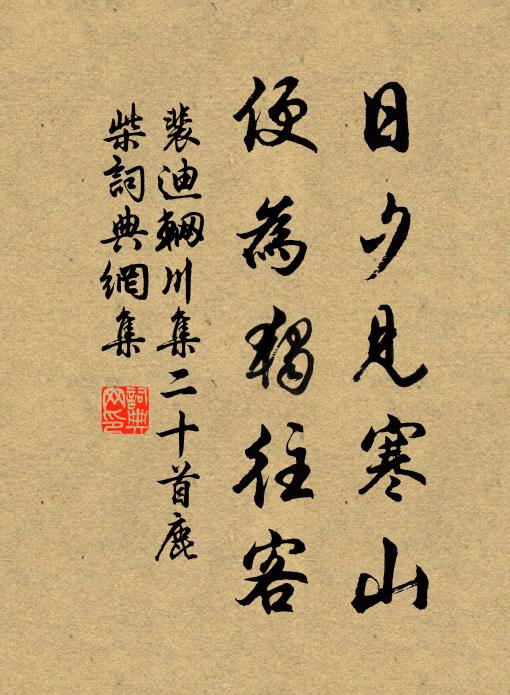 日夕見寒山
便為獨往客
裴迪輞川集二十首鹿
柴詞典網集
詞典網印